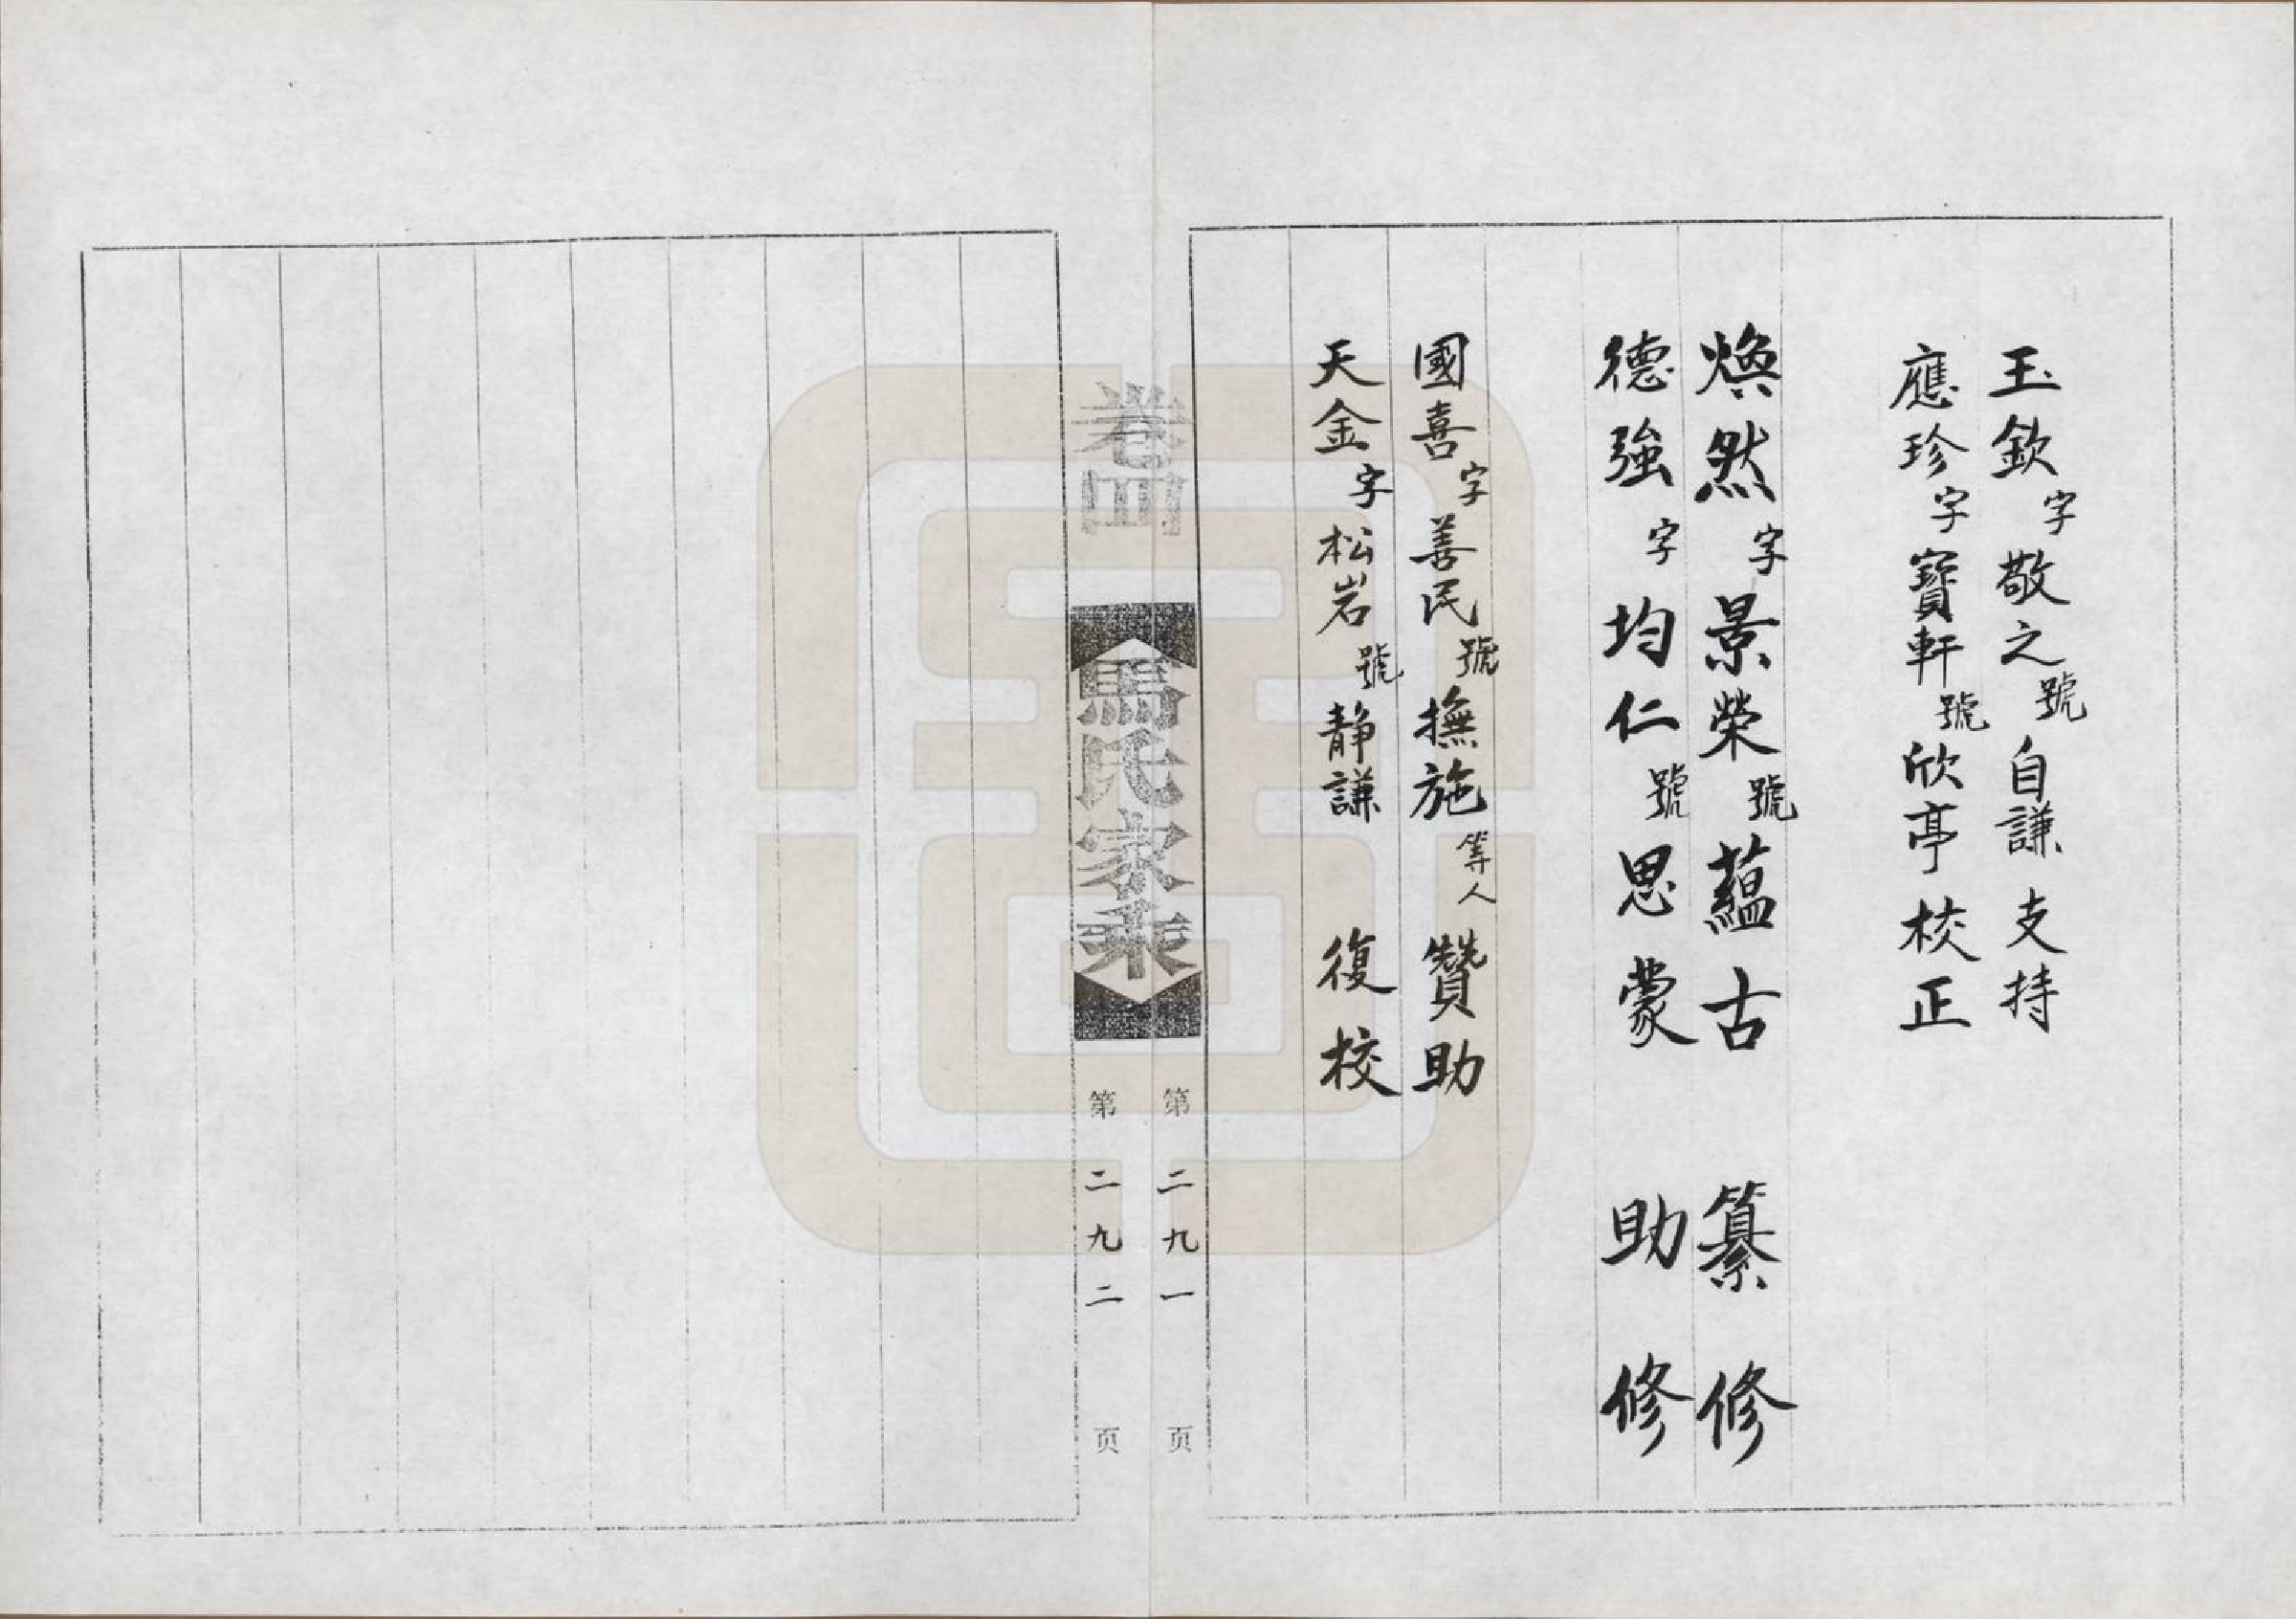 玉欽字敬之號自謙 支持
應珍字寶軒號欣亭 校正
煥然字景榮號蘊古 纂修
德強字均仁號思蒙 助修
國喜字善民號撫施等人 贊助
天金字松岩號静謙 復校
卷四
馬氏家乘
第二九一页
第二九二页